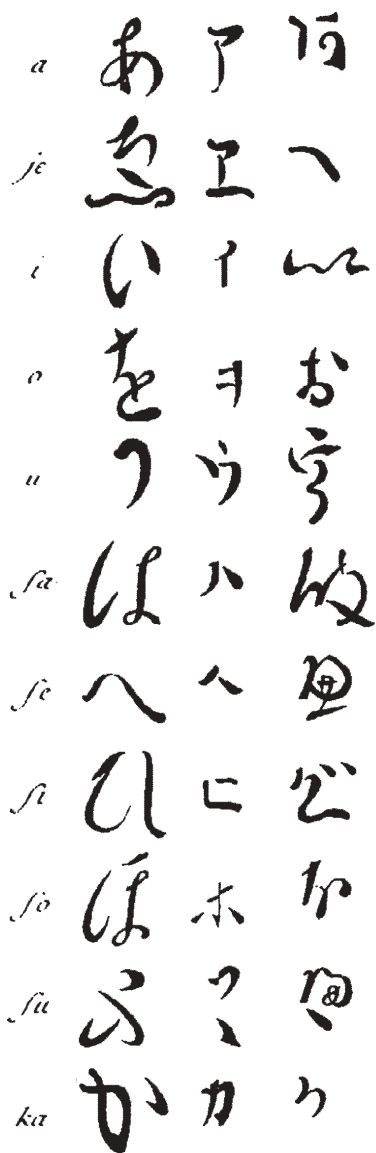 a あ ア 阿
je ゑ ヱ へ
i い イ
o を ヲ お
u う ウ
fa は ハ
fe へ ヘ
fi ひ ヒ
fo ほ ホ
fu ふ
ka か カ